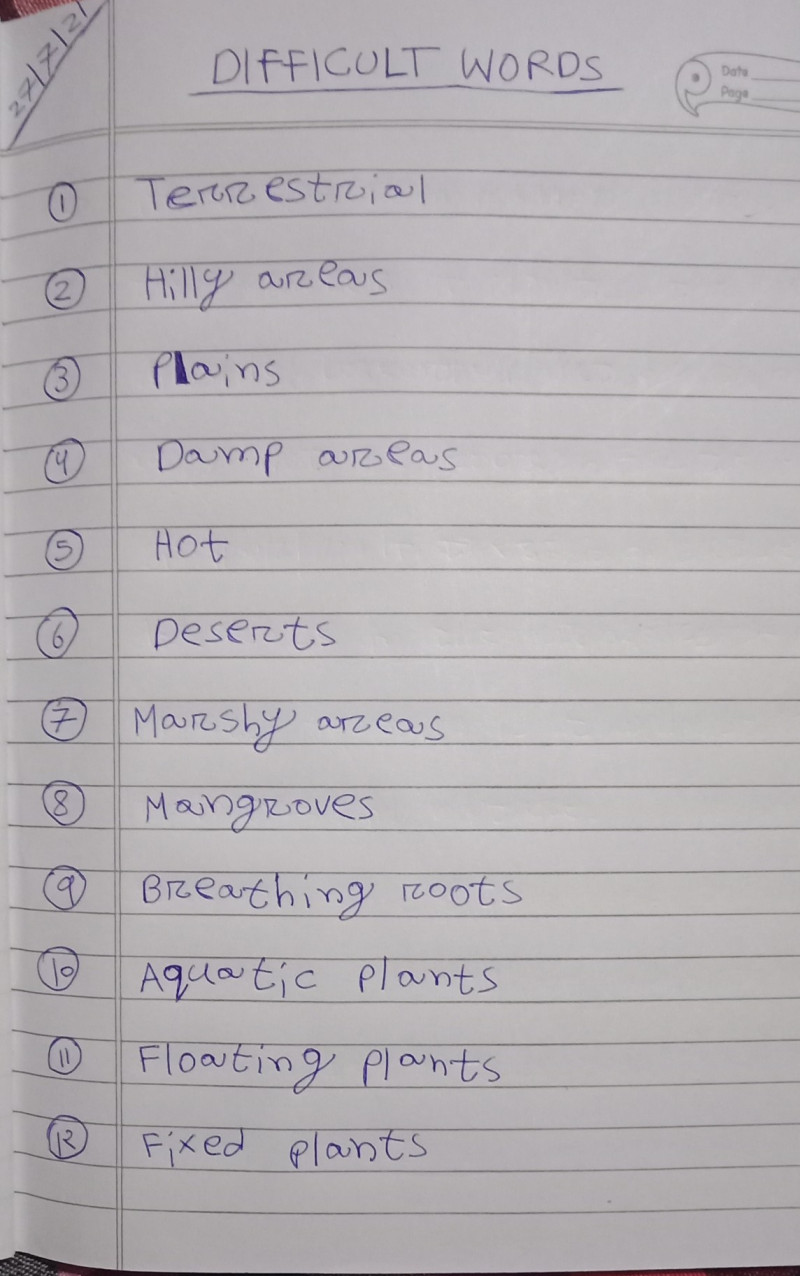 27/7/21
DIFFICULT WORDS
Date
Page
1 Terrestrial
2 Hilly areas
3 Plains
4 Damp areas
5 Hot
6 Deserts
7 Marshy areas
8 Mangroves
9 Breathing roots
10 Aquatic plants
11 Floating plants
12 Fixed plants